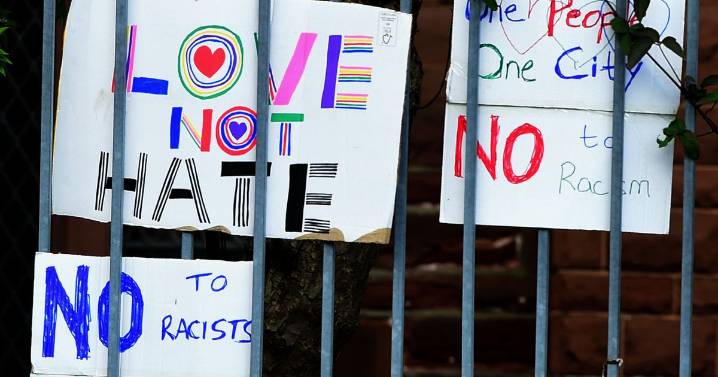 LOVE
NOT
HATE
One People
One City
NO to
Racism
NO TO
RACISTS